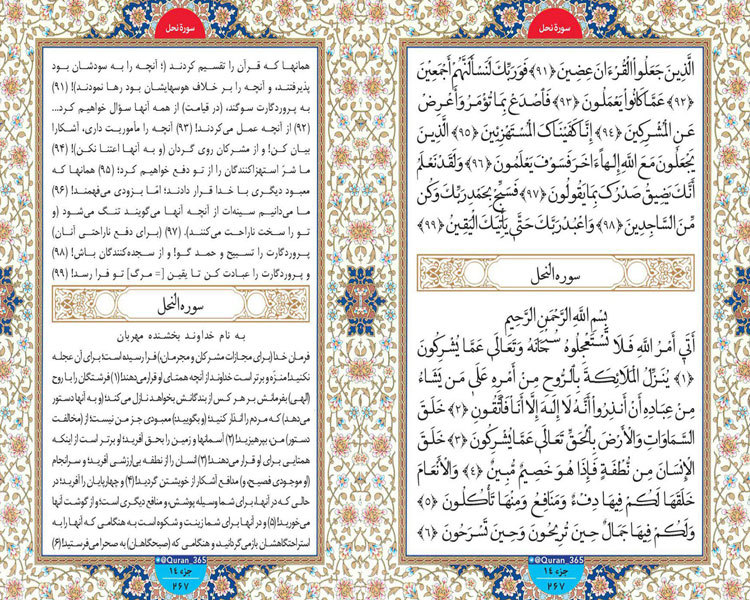 سورة نحل
الَّذِينَ جَعَلُوا الْقُرْءَانَ عِضِينَ ﴿۹۱﴾ فَوَرَبِّكَ لَنَسْأَلَنَّهُمْ أَجْمَعِينَ
﴿۹۲﴾ عَمَّا كَانُوا يَعْمَلُونَ ﴿۹۳﴾ فَاصْدَعْ بِمَا تُؤْمَرُ وَأَعْرِضْ
عَنِ الْمُشْرِكِينَ ﴿۹٤﴾ إِنَّا كَفَيْنَاكَ الْمُسْتَهْزِئِينَ ﴿۹۵﴾ الَّذِينَ
يَجْعَلُونَ مَعَ اللَّهِ إِلَهًا ءَاخَرَ فَسَوْفَ يَعْلَمُونَ ﴿۹۶﴾ وَلَقَدْ نَعْلَمُ
أَنَّكَ يَضِيقُ صَدْرُكَ بِمَا يَقُولُونَ ﴿۹۷﴾ فَسَبِّحْ بِحَمْدِ رَبِّكَ وَكُن
مِّنَ السَّاجِدِينَ ﴿۹۸﴾ وَاعْبُدْ رَبَّكَ حَتَّى يَأْتِيَكَ الْيَقِينُ ﴿۹۹﴾
سورة النحل
بِسْمِ اللَّهِ الرَّحْمَنِ الرَّحِيمِ
أَتَى أَمْرُ اللَّهِ فَلَا تَسْتَعْجِلُوهُ سُبْحَانَهُ وَتَعَالَى عَمَّا يُشْرِكُونَ
﴿۱﴾ يُنَزِّلُ الْمَلَائِكَةَ بِالْرُّوحِ مِنْ أَمْرِهِ عَلَى مَن يَشَاءُ
مِنْ عِبَادِهِ أَنْ أَنذِرُوا أَنَّهُ لَا إِلَهَ إِلَّا أَنَا فَاتَّقُونِ ﴿۲﴾ خَلَقَ
السَّمَاوَاتِ وَالْأَرْضَ بِالْحَقِّ تَعَالَى عَمَّا يُشْرِكُونَ ﴿۳﴾ خَلَقَ
الْإِنسَانَ مِن نُّطْفَةٍ فَإِذَا هُوَ خَصِيمٌ مُّبِينٌ ﴿٤﴾ وَالْأَنْعَامَ
خَلَقَهَا لَكُمْ فِيهَا دِفْءٌ وَمَنَافِعُ وَمِنْهَا تَأْكُلُونَ ﴿۵﴾
وَلَكُمْ فِيهَا جَمَالٌ حِينَ تُرِيحُونَ وَحِينَ تَسْرَحُونَ ﴿۶﴾
@Quran_365
جزء ۱٤
۲۶۷
سورة نحل
همانها که قرآن را تقسیم کردند (؛ آنچه را به سودشان بود
پذیرفتند، و آنچه را بر خلاف هوسهایشان بود رها نمودند)! (۹۱)
به پروردگارت سوگند، (در قیامت) از همه آنها سؤال خواهیم کرد...
(۹۲) از آنچه عمل می‌کردند! (۹۳) آنچه را مأموریت داری، آشکارا
بیان کن! و از مشرکان روی گردان (و به آنها اعتنا نکن)! (۹۴)
ما شرّ استهزاکنندگان را از تو دفع خواهیم کرد؛ (۹۵) همانها که
معبود دیگری با خدا قرار دادند؛ امّا بزودی می‌فهمند! (۹۶)
ما می‌دانیم سینه‌ات از آنچه آنها می‌گویند تنگ می‌شود (و
تو را سخت ناراحت می‌کنند). (۹۷) (برای دفع ناراحتی آنان)
پروردگارت را تسبیح و حمد گو! و از سجده‌کنندگان باش! (۹۸)
و پروردگارت را عبادت کن تا یقین [= مرگ] تو فرا رسد! (۹۹)
سورة النحل
به نام خداوند بخشنده مهربان
فرمان خدا (برای مجازات مشرکان و مجرمان)، فرا رسیده است؛ برای آن عجله
نکنید! منزّه و برتر است خداوند از آنچه همتای او قرار می‌دهند! (۱) فرشتگان را با روح
(الهی) بفرمانش بر هر کس از بندگانش بخواهد نازل می‌کند؛ (و به آنها دستور
می‌دهد) که مردم را انذار کنید؛ (و بگویید:) معبودی جز من نیست؛ از (مخالفت
دستور) من، بپرهیزید! (۲) آسمانها و زمین را بحق آفرید؛ او برتر است از اینکه
همتایی برای او قرار می‌دهند! (۳) انسان را از نطفه بی‌ارزشی آفرید؛ و سرانجام
(او موجودی فصیح، و) مدافع آشکار از خویشتن گردید! (۴) و چهارپایان را آفرید؛ در
حالی که در آنها، برای شما وسیله پوشش، و منافع دیگری است؛ و از گوشت آنها
می‌خورید! (۵) و در آنها برای شما زینت و شکوه است به هنگامی که آنها را به
استراحتگاهشان بازمی‌گردانید، و هنگامی که (صبحگاهان) به صحرا می‌فرستید! (۶)
@Quran_365
جزء ۱٤
۲۶۷